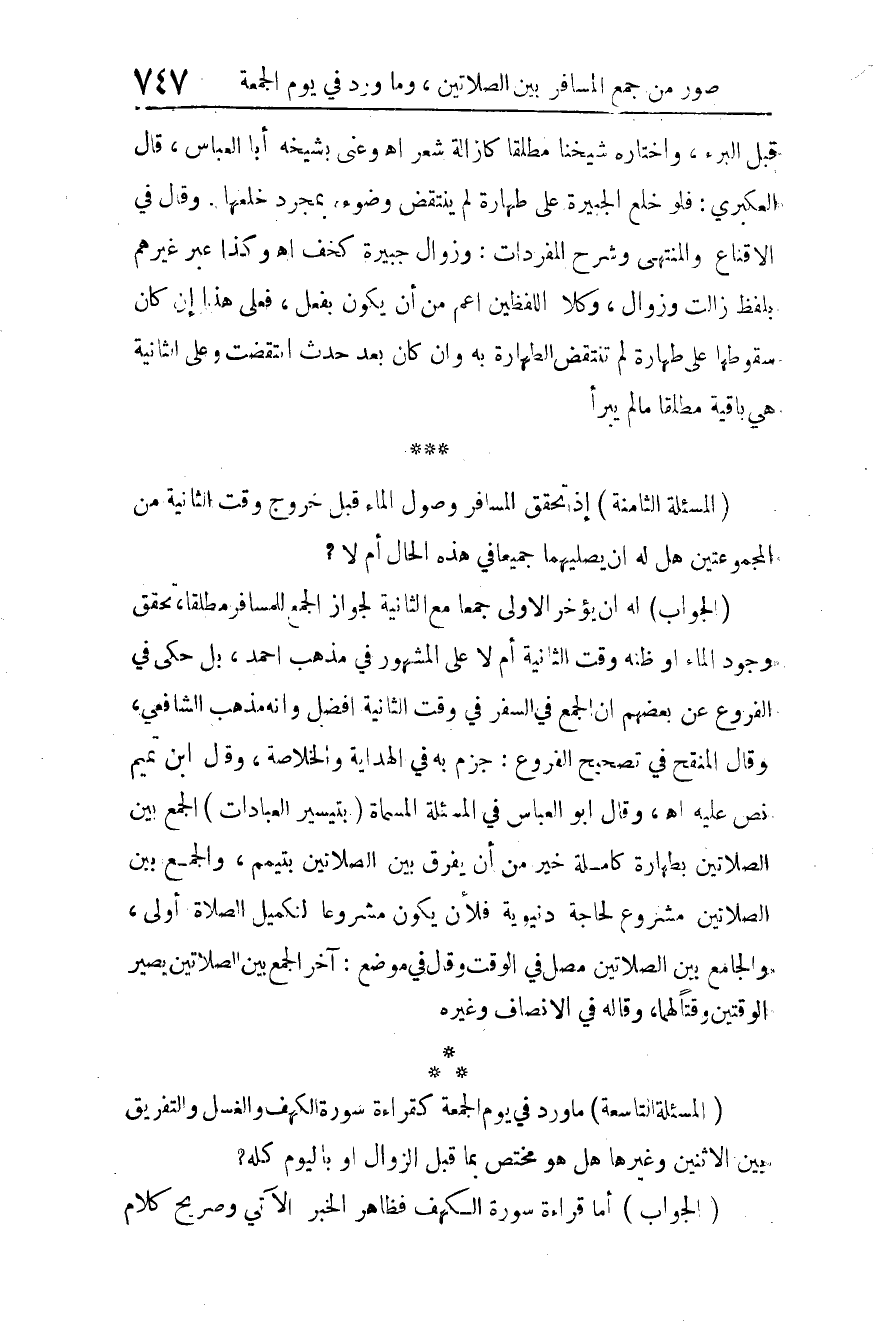 صور من جمع المسافر بين الصلاتين ، وما ورد في يوم الجمعة ٧٤٧
قبل البرء ، واختاره شيخنا مطلقا كازالة شعر اه وعنى بشيخه أبا العباس ، قال
العكبري : فلو خلع الجبيرة على طهارة لم ينتقض وضوءه بمجرد خلعها . وقال في
الاقناع والمنتهى وشرح المفردات : وزوال جبيرة كخف اه وكذا عبر غيرهم
بلفظ زالت وزوال ، وكلا اللفظين اعم من أن يكون بفعل ، فعلى هذا إن كان
سقوطها على طهارة لم تنتقض الطهارة به وان كان بعد حدث انتقضت وعلى الثانية
هي باقية مطلقا مالم يبرأ
***
( المسئلة الثامنة ) إذا تحقق المسافر وصول الماء قبل خروج وقت الثانية من
المجموعتين هل له ان يصليهما جميعا في هذه الحال أم لا ?
(الجواب) له ان يؤخر الاولى جمعا مع الثانية لجواز الجمع للمسافر مطلقا، تحقق
وجود الماء او ظنه وقت الثانية أم لا على المشهور في مذهب احمد ، بل حكى في
الفروع عن بعضهم ان الجمع في السفر في وقت الثانية افضل وانه مذهب الشافعي،
وقال المنقح في تصحيح الفروع : جزم به في الهداية والخلاصة ، وقال ابن تميم
نص عليه اه ، وقال ابو العباس في المسئلة المسماة ( بتيسير العبادات ) الجمع بين
الصلاتين بطهارة كاملة خير من أن يفرق بين الصلاتين بتيمم ، والجمع بين
الصلاتين مشروع لحاجة دنيوية فلأن يكون مشروعا لتكميل الصلاة أولى ،
والجامع بين الصلاتين مصل في الوقت وقال في موضع : آخر الجمع بين الصلاتين يصير
الوقتين وقتاً لهما، وقاله في الانصاف وغيره
*
* *
( المسئلة التاسعة) ماورد في يوم الجمعة كقراءة سورة الكهف والغسل والتفريق
بين الاثنين وغيرها هل هو مختص بما قبل الزوال او باليوم كله?
( الجواب ) أما قراءة سورة الكهف فظاهر الخبر الآتي وصريح كلام